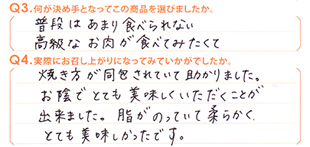 Q3.何が決め手となってこの商品を選びましたか。
普段はあまり食べられない
高級なお肉が食べてみたくて
Q4.実際にお召し上がりになってみていかがでしたか。
焼き方が同包されていて助かりました。
お陰でとても美味しくいただくことが
出来ました。脂がのっていて柔らかく
とても美味しかったです。